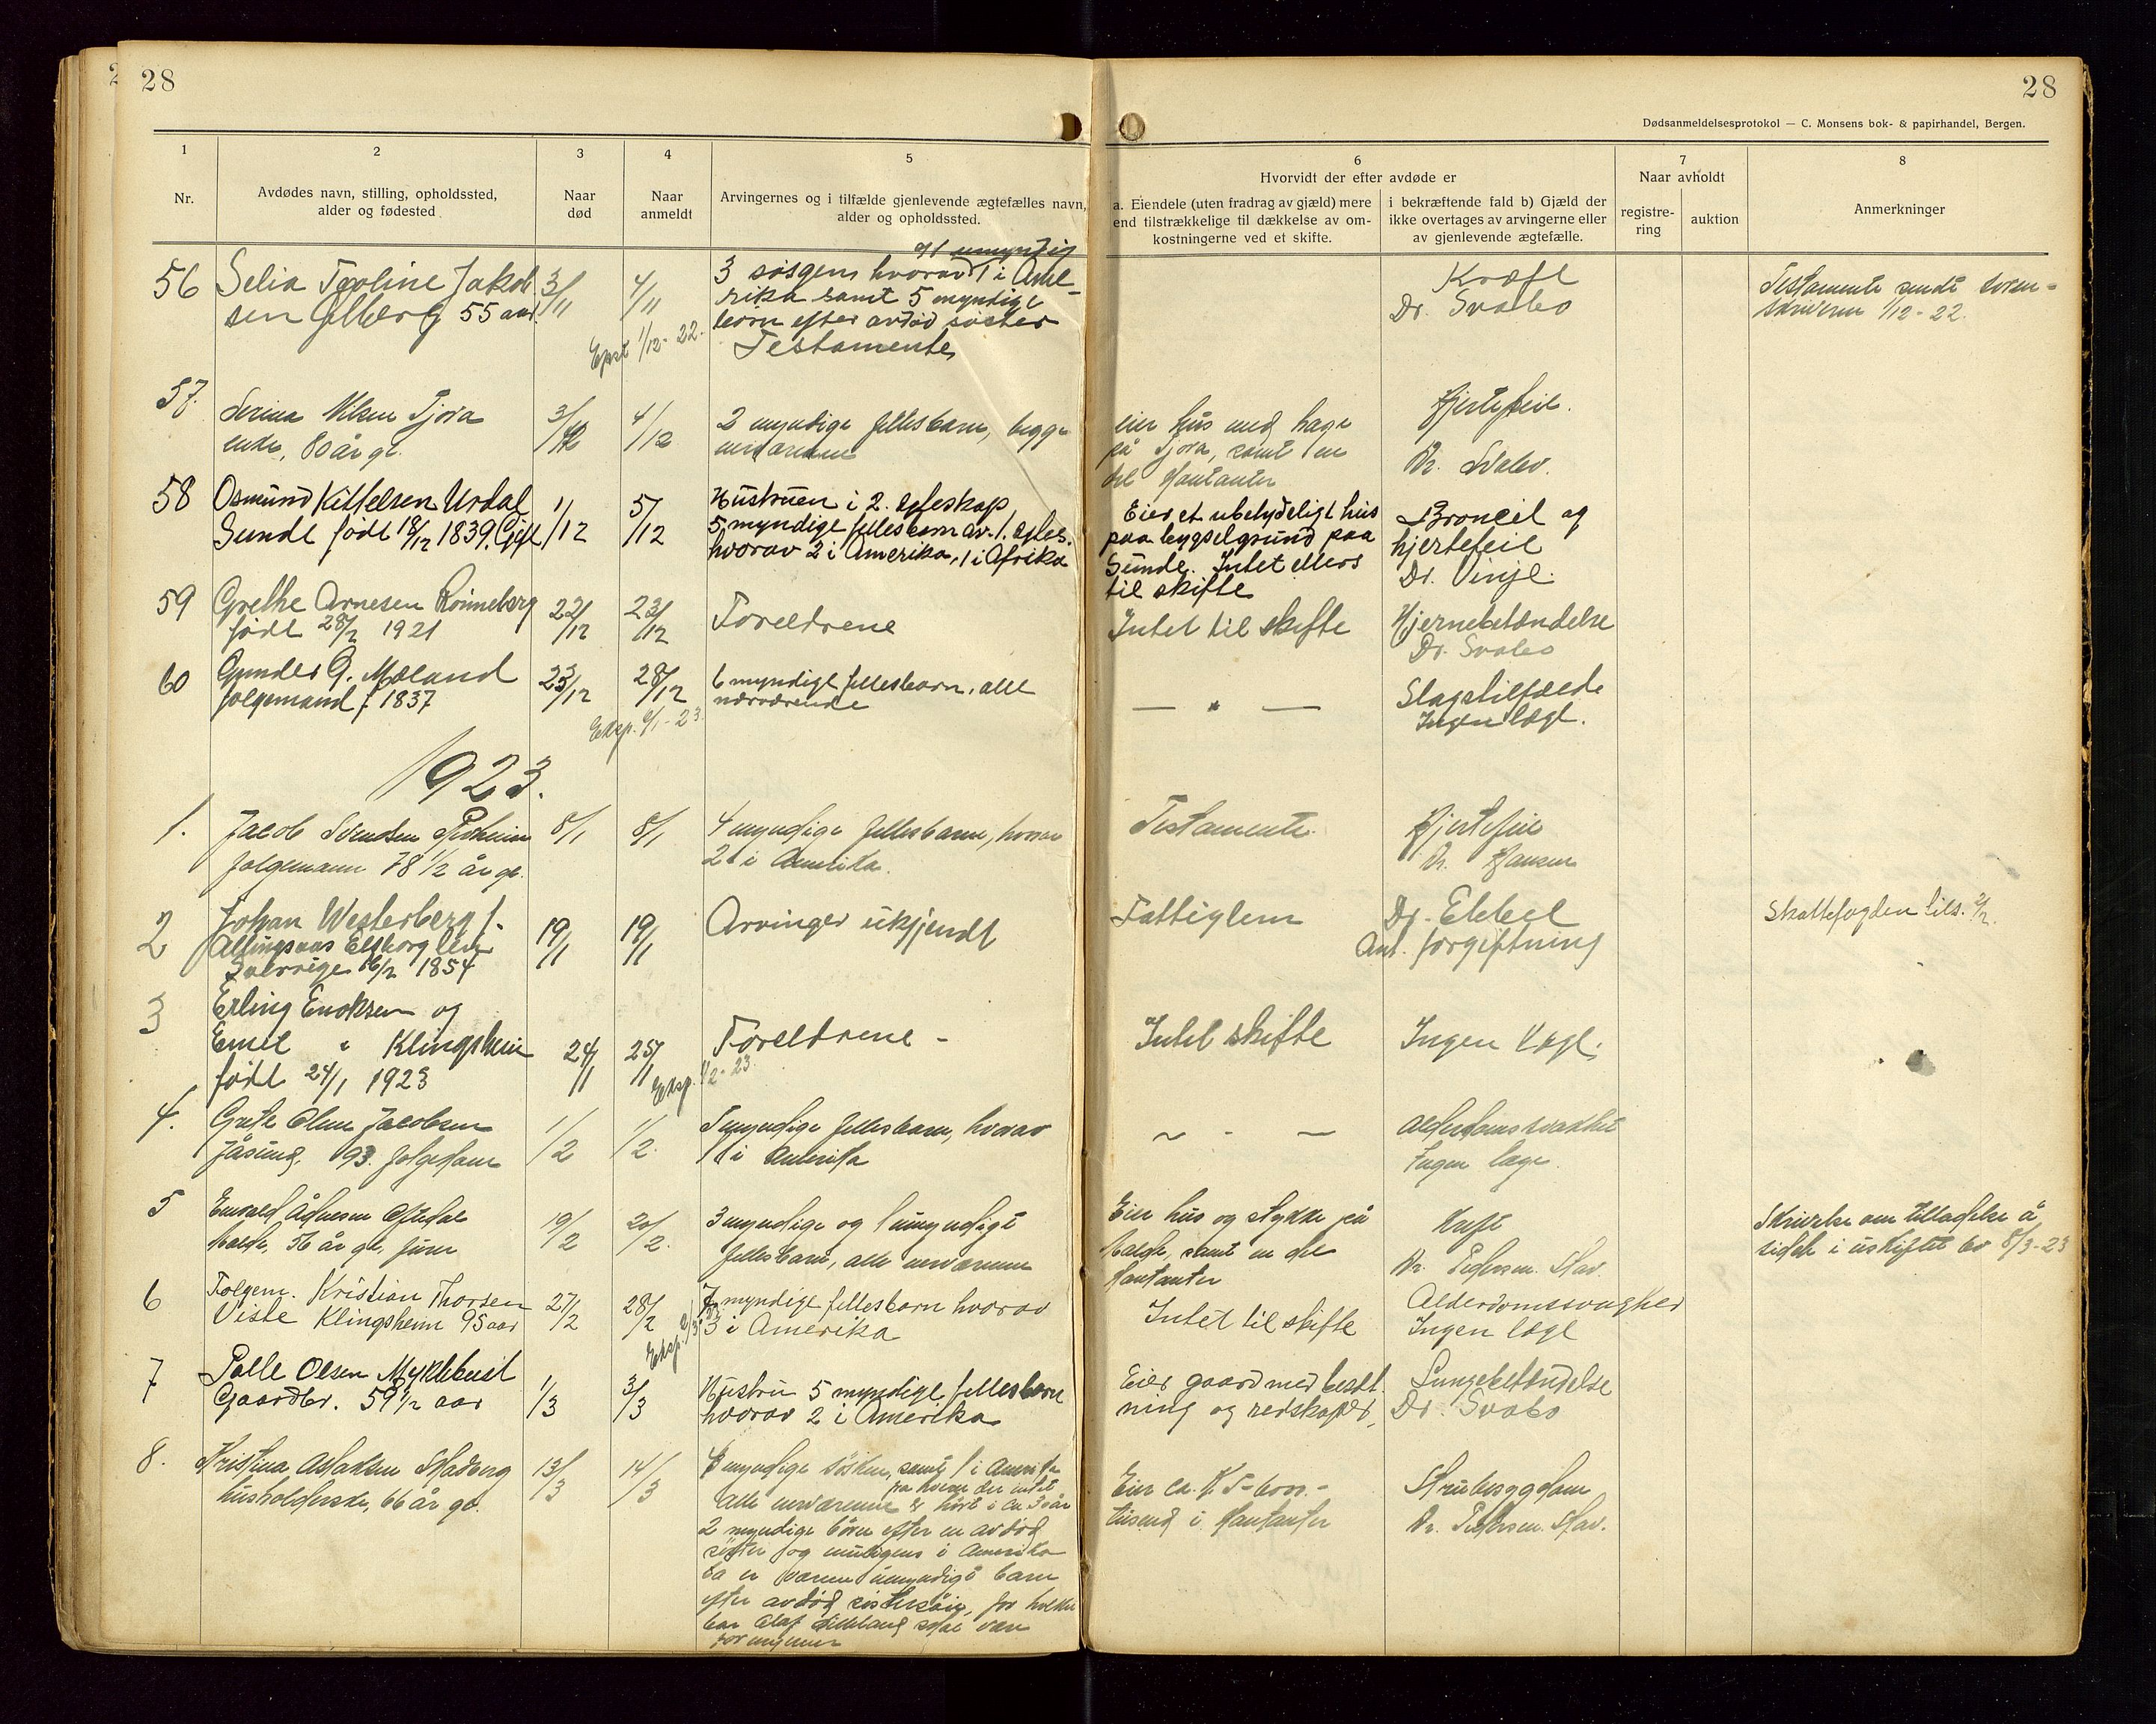 28
28
Dødsanmeldelsesprotokol — C. Monsens bok- & papirhandel, Bergen.
1
Nr.
2
Avdødes navn, stilling, opholdssted,
alder og fødested
3
Naar
død
4
Naar
anmeldt
5
Arvingernes og i tilfælde gjenlevende ægtefælles navn,
alder og opholdssted.
6
Hvorvidt der efter avdøde er
a. Eiendele (uten fradrag av gjæld) mere
end tilstrækkelige til dækkelse av om-
kostningerne ved et skifte.
i bekræftende fald b) Gjæld der
ikke overtages av arvingerne eller
av gjenlevende ægtefælle.
7
Naar avholdt
registre-
ring
auktion
8
Anmerkninger
56
Selia Teoline Jakob
sen 55 aar.
3/11
4/11
og 1 umyndig
3 søsgen hvorav 1 i Ame-
rika samt 5 myndige
børn efter avdød søster
Testamente
1/12-22.
Kræft
Dr. Svabo
Testamente sendt soren-
skriveren 1/12-22.
57.
Serina Nilsen Tjora
enke, 80 år gl.
3/12
4/12
2 myndige fellesbarn, begge
nærværende
eier hus med hage
på Tjora, samt en
del kontanter
Hjertefeil.
Dr. Svabo.
58
Osmund Kittelsen Urdal
Sunde født 18/12 1839. Gift
1/12
5/12
Hustruen i 2. egteskap
5 myndige fellesbarn av 1. egtes.
hvorav 2 i Amerika, 1 i Afrika
Eier et ubetydeligt hus
paa bygselgrund paa
Sunde. Intet ellers
til skifte
Broncit og
hjertefeil
Dr. Vinje.
59
Grethe Arnesen Rønneberg
født 28/2 1921
22/12
23/12
Foreldrene
Intet til skifte
Hjernebetændelse
Dr. Svabo
60
Gunder G. Mæland
folgemand f. 1837
23/12
28/12
6 myndige fellesbarn, alle
nærværende
Eksp. 6/1-23.
— " —
Slagtilfælde
Ingen læge.
1923.
1.
Jacob Svendsen
folgemann 78 1/2 år gl.
8/1
8/1
4 myndige fellesbarn, hvorav
2 i Amerika.
Testamente.
Hjertefeil
Dr. Hansen
2
Johan Westerberg f.
Allingsaas Elfsborg len
Sverrige 16/2 1854
19/1
19/1
Arvinger ukjendt
Fattiglem
Dr. Ebbel
Ant. forgiftning
Skattefogden tils. 2/2.
3
Erling Enoksen og
Emil " Klingsheim
født 24/1 1923
24/1
25/1
Foreldrene -
Eksp. 1/2-23.
Intet skifte
Ingen læge.
4.
Grete Olene Jacobsen
Jåsund, 93. folgekone
1/2
1/2.
myndige fellesbarn, hvorav
1 i Amerika
~ - —
Alderdomssvakhet
Ingen læge.
5
56 år gl.
19/2
20/2.
3 myndige og 1 umyndigt
fellesbarn, alle nærværende
Eier hus og stykke på
samt en del
kontanter
Kræft
Dr. Pedersen. Stav.
Skrivelse om tilladelse å
sidde i uskiftet bo 8/3-23
6
Folgem. Kristian Thorsen
Viste Klingsheim 95 aar
27/2
28/2
7 myndige fellesbarn hvorav
3 i Amerika
Eksp.
Intet til skifte
Alderdomssvaghed
Ingen læge
7
Palle Olsen Myklebust
Gaardbr. 59 1/2 aar
1/3
3/3
Hustru 5 myndige fellesbarn
hvorav 2 i Amerika
Eier gaard med besæt-
ning og redskaper.
Lungebetændelse
Dr. Svabo
8.
Kristina Aslaksen Skadberg
husholderske, 66 år gl.
13/3
14/3
myndige søsken, samt 1 i Amerika
fra hvem der intet
alle nærværende er hørt i ca 30 år
2 myndige børn efter en avdød
søster og muligens i Amerika
umyndigt barn
efter avdød for hvilke
bar Olaf skal være
formynner
Eier ca. K 5-6000.-
tusend i kontanter
Strubesygdom
Dr. Pedersen. Stav.